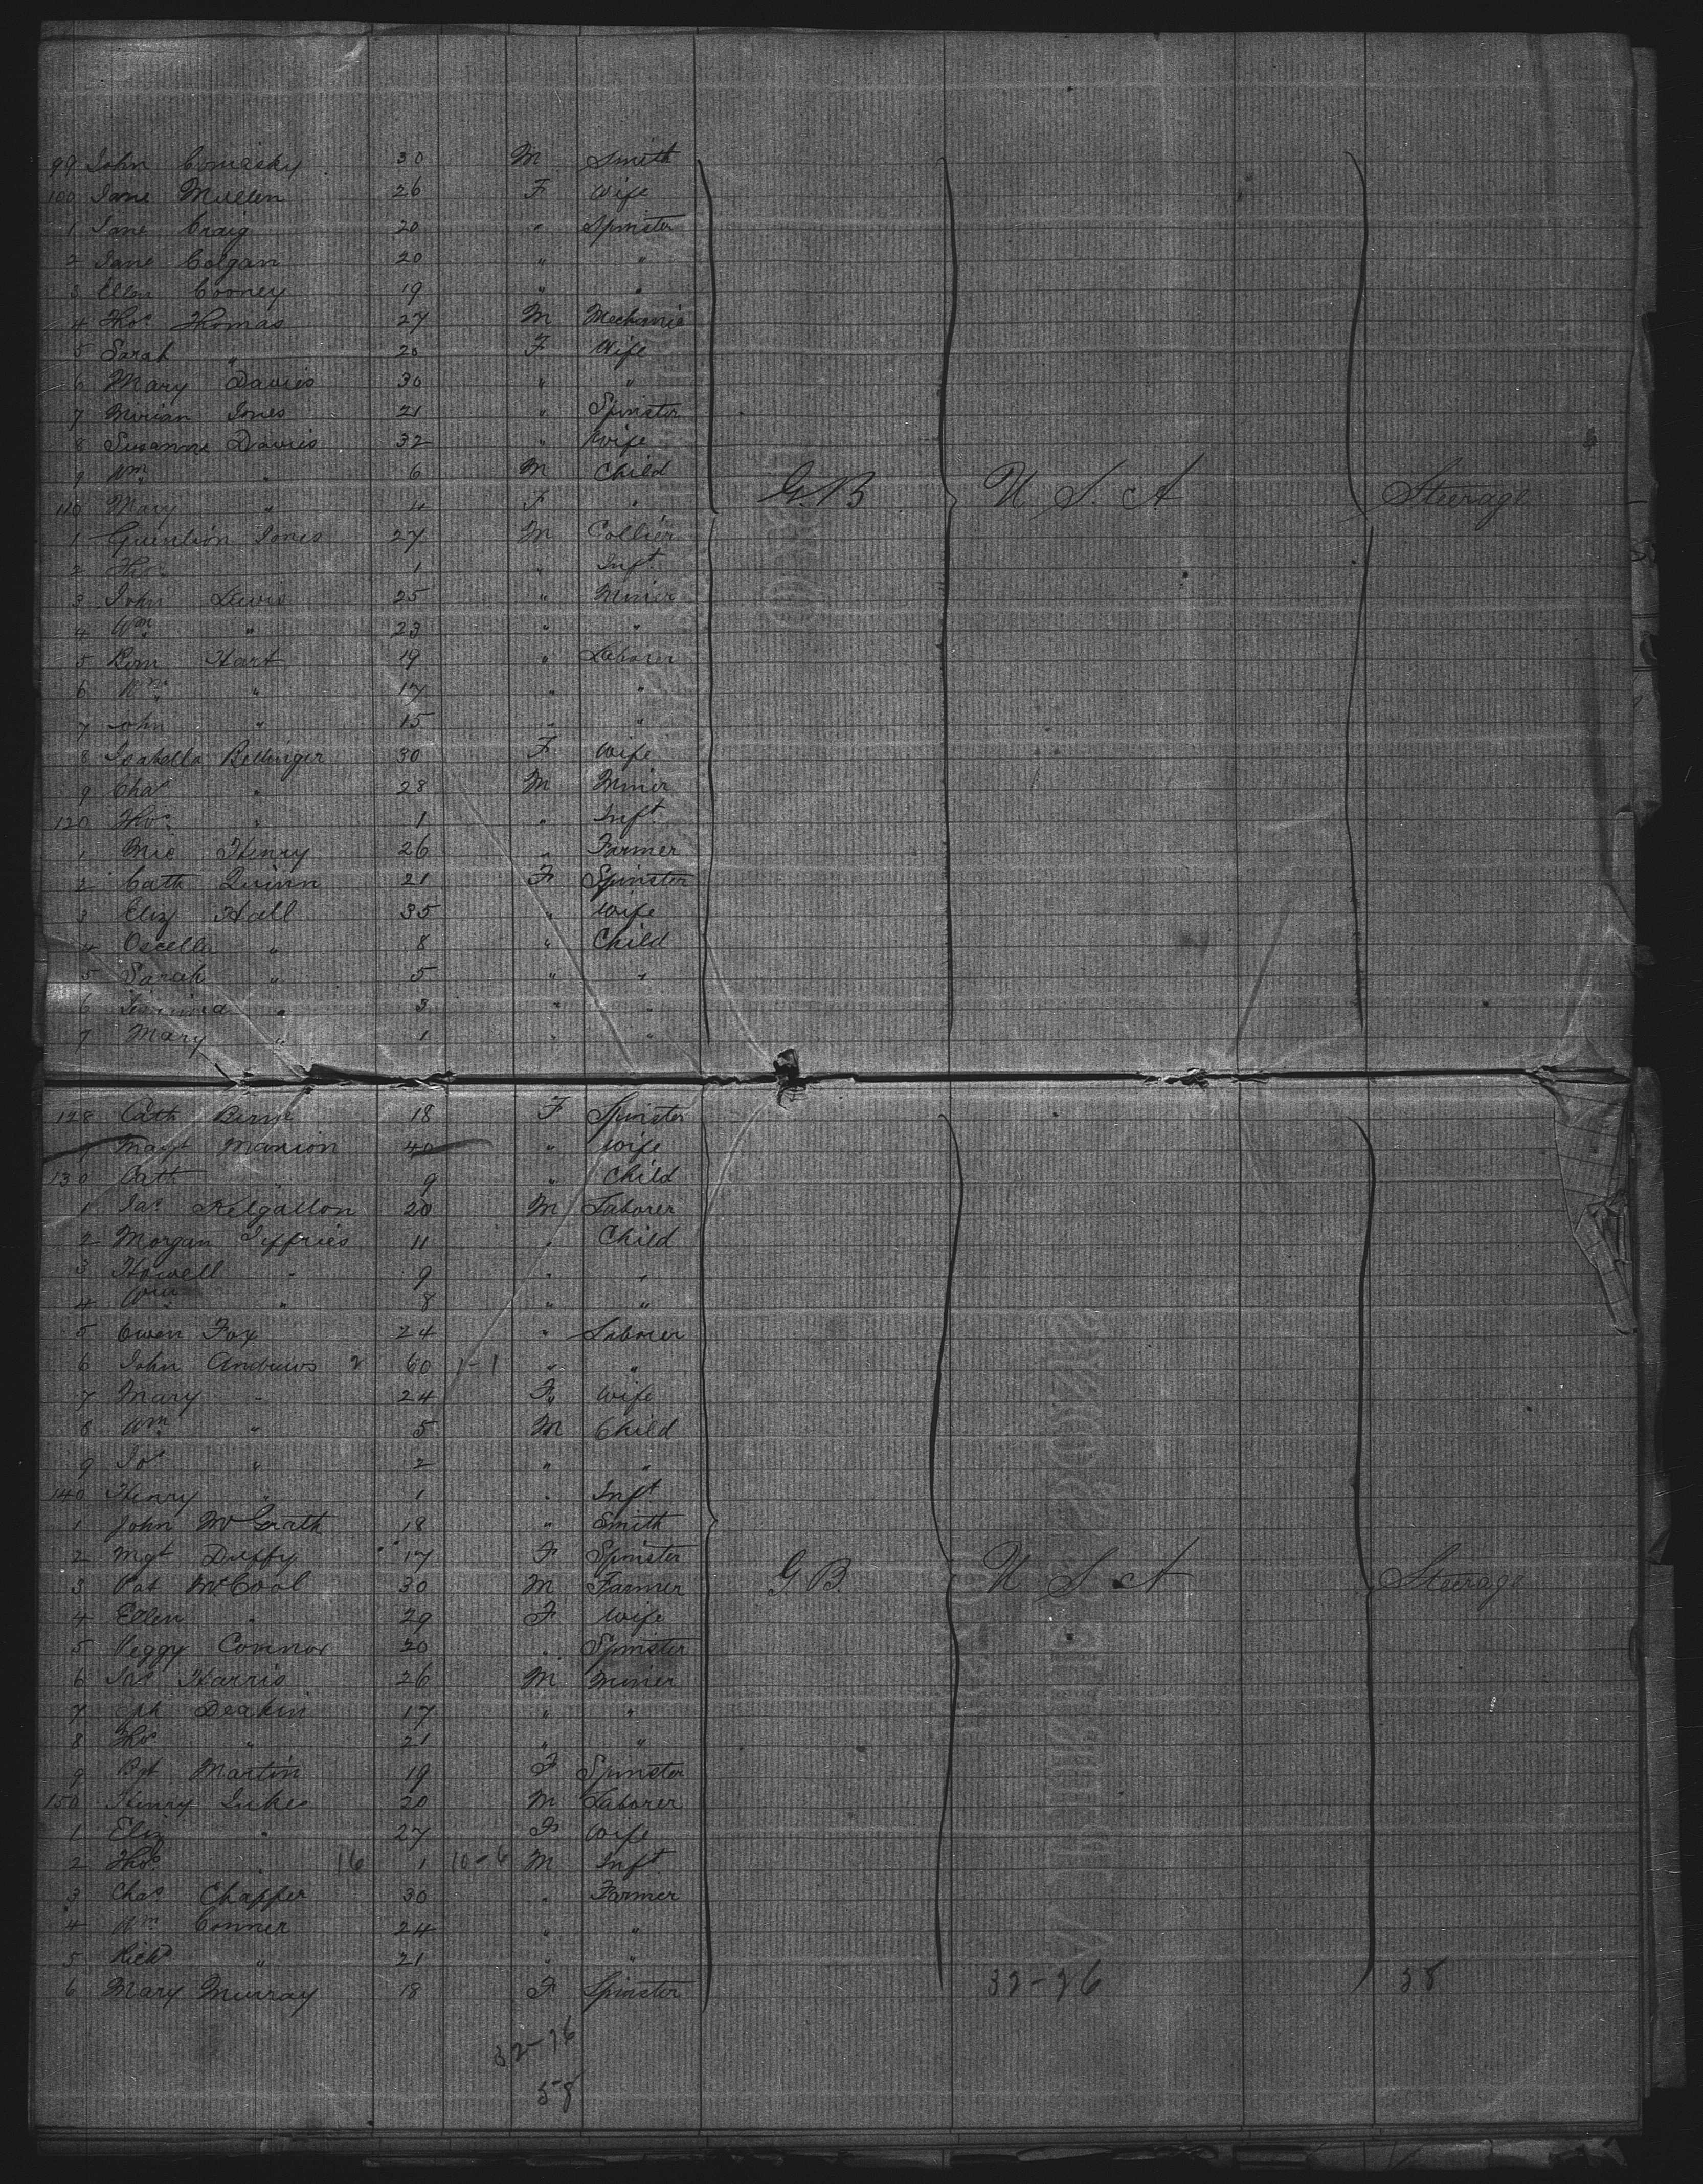 99 John Comiskey 30 M Smith
100 Jane Mullen 26 F Wife
1 Jane Craig 20 " Spinster
2 Jane Colgan 20 " "
3 Ellen Cooney 19 " "
4 Thos Thomas 27 M Mechanic
5 Sarah " 20 F Wife
6 Mary Davies 30 " "
7 Mirian Jones 21 " Spinster
8 Susanna Davies 32 " Wife
9 Wm " 6 M Child
110 Mary " 4 F "
G.B U. S. A Steerage
1 Jones 27 M Collier
2 Thos 1 " Inft
3 John Lewis 25 " Miner
4 Wm " 23 " "
5 Hart 19 " Laborer
6 Wm " 17 " "
7 John " 15 " "
8 Isabella 30 F Wife
9 Chas " 28 M Miner
120 Thos " 1 " Inft.
1 Mic Henry 26 " Farmer
2 Cath Quinn 21 F Spinster
3 Eliz Hall 35 " Wife
4 " 8 " Child
5 Sarah " 5 " "
6 " 3 " "
7 Mary " 1 " "
128 Cath 18 F Spinster
9 Magt Manion 40 " Wife
130 Cath " 9 " Child
1 Jas Kelgallon 20 M Laborer
2 Morgan Jeffries 11 " Child
3 Howell " 9 " "
4 Wm " 8 " "
5 Owen Fox 24 " Laborer
6 John Andrews 2 60 1-1 " "
7 Mary " 24 F Wife
8 Wm " 5 M Child
9 Jos " 2 " "
140 Henry " 1 " Inft
1 John McGrath 18 " Smith
2 Mgt Duffy 17 F Spinster
3 Pat McCool 30 M Farmer
G B. U S A Steerage
4 Ellen " 29 F Wife
5 Peggy Connor 20 " Spinster
6 Jas Harris 26 M Miner
7 Eph Deakin 17 " "
8 Thos " 21 " "
9 Bgt Martin 19 F Spinster
150 Henry 20 M Laborer
1 Eliz " 27 F Wife
2 Thos " 16 1 10-6 M Inft
3 Chas Chapfer 30 " Farmer
4 Wm Conner 24 " "
5 Richd " 21 " "
6 Mary Murray 18 F Spinster
32-26 58
32-26
58